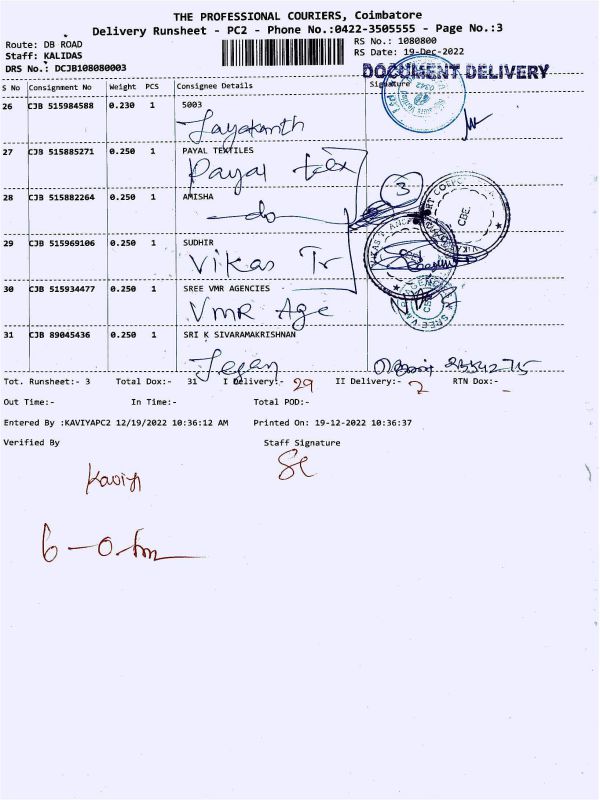 THE PROFESSIONAL COURIERS, Coimbatore
Delivery Runsheet - PC2 - Phone No.:0422-3505555 - Page No.:3
Route: DB ROAD
RS No.: 1080800
Staff: KALIDAS
RS Date: 19-Dec-2022
DRS No.: DCJB108080003
DOCUMENT DELIVERY
S No Consignment No Weight PCS Consignee Details Signature
26 CJB 515984588 0.230 1 5003
Jayakanth
27 CJB 515885271 0.250 1 PAYAL TEXTILES
Payal tex
28 CJB 515882264 0.250 1 AMISHA
do 3
CBE.
29 CJB 515969106 0.250 1 SUDHIR
Vikas Tr
30 CJB 515934477 0.250 1 SREE VMR AGENCIES
VMR Age
31 CJB 89045436 0.250 1 SRI K SIVARAMAKRISHNAN
Jegan
Tot. Runsheet:- 3 Total Dox:- 31 I Delivery:- 29 II Delivery:- 2 RTN Dox:- -
Out Time:- In Time:- Total POD:-
Entered By :KAVIYAPC2 12/19/2022 10:36:12 AM Printed On: 19-12-2022 10:36:37
Verified By Staff Signature
Kaviya